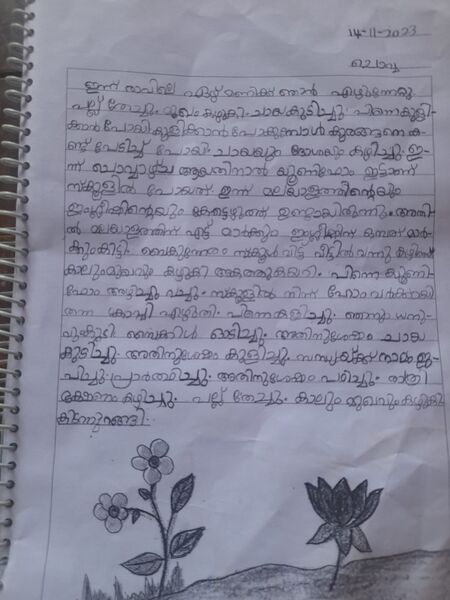 14-11-2023
ചൊവ്വ
ഇന്ന് രാവിലെ ഏഴ് മണിക്ക് ഞാൻ എഴുന്നേറ്റു.
പല്ല് തേച്ചു. മുഖം കഴുകി. ചായകുടിച്ചു. പിന്നെ കുളി-
ക്കാൻ പോയി കുളിക്കാൻ പോകുമ്പോൾ കുരങ്ങനെ ക-
ണ്ട് പേടിച്ച് പോയി. ചായയും ദോശയും കഴിച്ചു. ഇ-
ന്ന് ചൊവ്വാഴ്ച ആയതിനാൽ യൂണിഫോം ഇട്ടാണ്
സ്കൂളിൽ പോയത്. ഇന്ന് മലയാളത്തിന്റെയും
ഇംഗ്ലീഷിന്റെയും കേട്ടെഴുത്ത് ഉണ്ടായിരുന്നു. അതി-
ൽ മലയാളത്തിന് എട്ട് മാർക്കും ഇംഗ്ലീഷിന് ഒമ്പത് മാർ-
ക്കും കിട്ടി. വൈകുന്നേരം സ്കൂൾ വിട്ട് വീട്ടിൽ വന്നു കഴിഞ്ഞ്
കാലും മുഖവും കഴുകി അകത്തുകയറി. പിന്നെ യൂണി-
ഫോം അഴിച്ചു വച്ചു. സ്കൂളിൽ നിന്ന് ഹോംവർക്കായി
തന്ന കോപ്പി എഴുതി. പിന്നെ കളിച്ചു. ഞാനും
കൂടി സൈക്കിൾ ഓടിച്ചു. അതിനുശേഷം ചായ
കുടിച്ചു. അതിനുശേഷം കുളിച്ചു. സന്ധ്യയ്ക്ക് നാമം ജ-
പിച്ചു. പ്രാർത്ഥിച്ചു. അതിനുശേഷം പഠിച്ചു. രാത്രി
ഭക്ഷണം കഴിച്ചു. പല്ല് തേച്ചു. കാലും മുഖവും കഴുകി
കിടന്നുറങ്ങി.